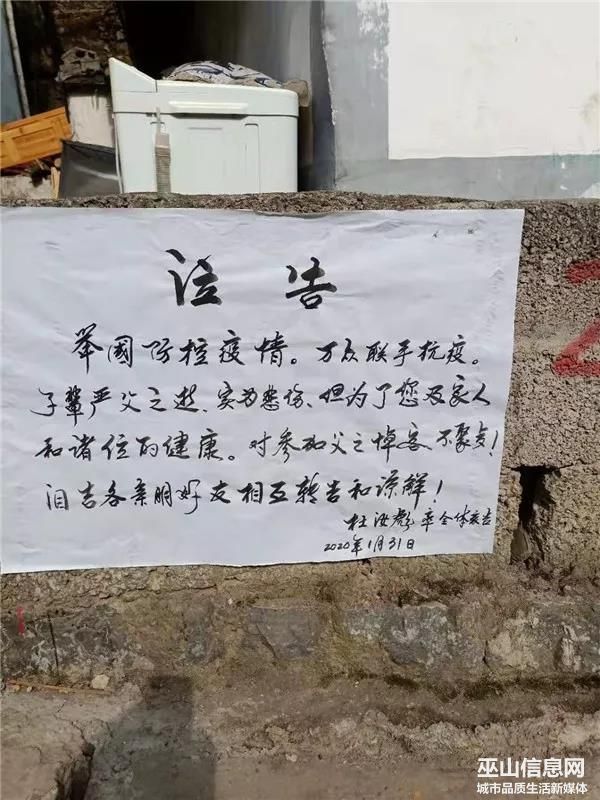 泣告
举國防控疫情。万众联手抗疫。
子輩严父之逝、实为悲伤、但为了您及家人
和诸位的健康。对参加父之悼客不聚贠！
泪告各亲朋好友相互转告和谅解！
杜汝彪率全体哀告
2020年1月31日
巫山信息网
城市品质生活新媒体